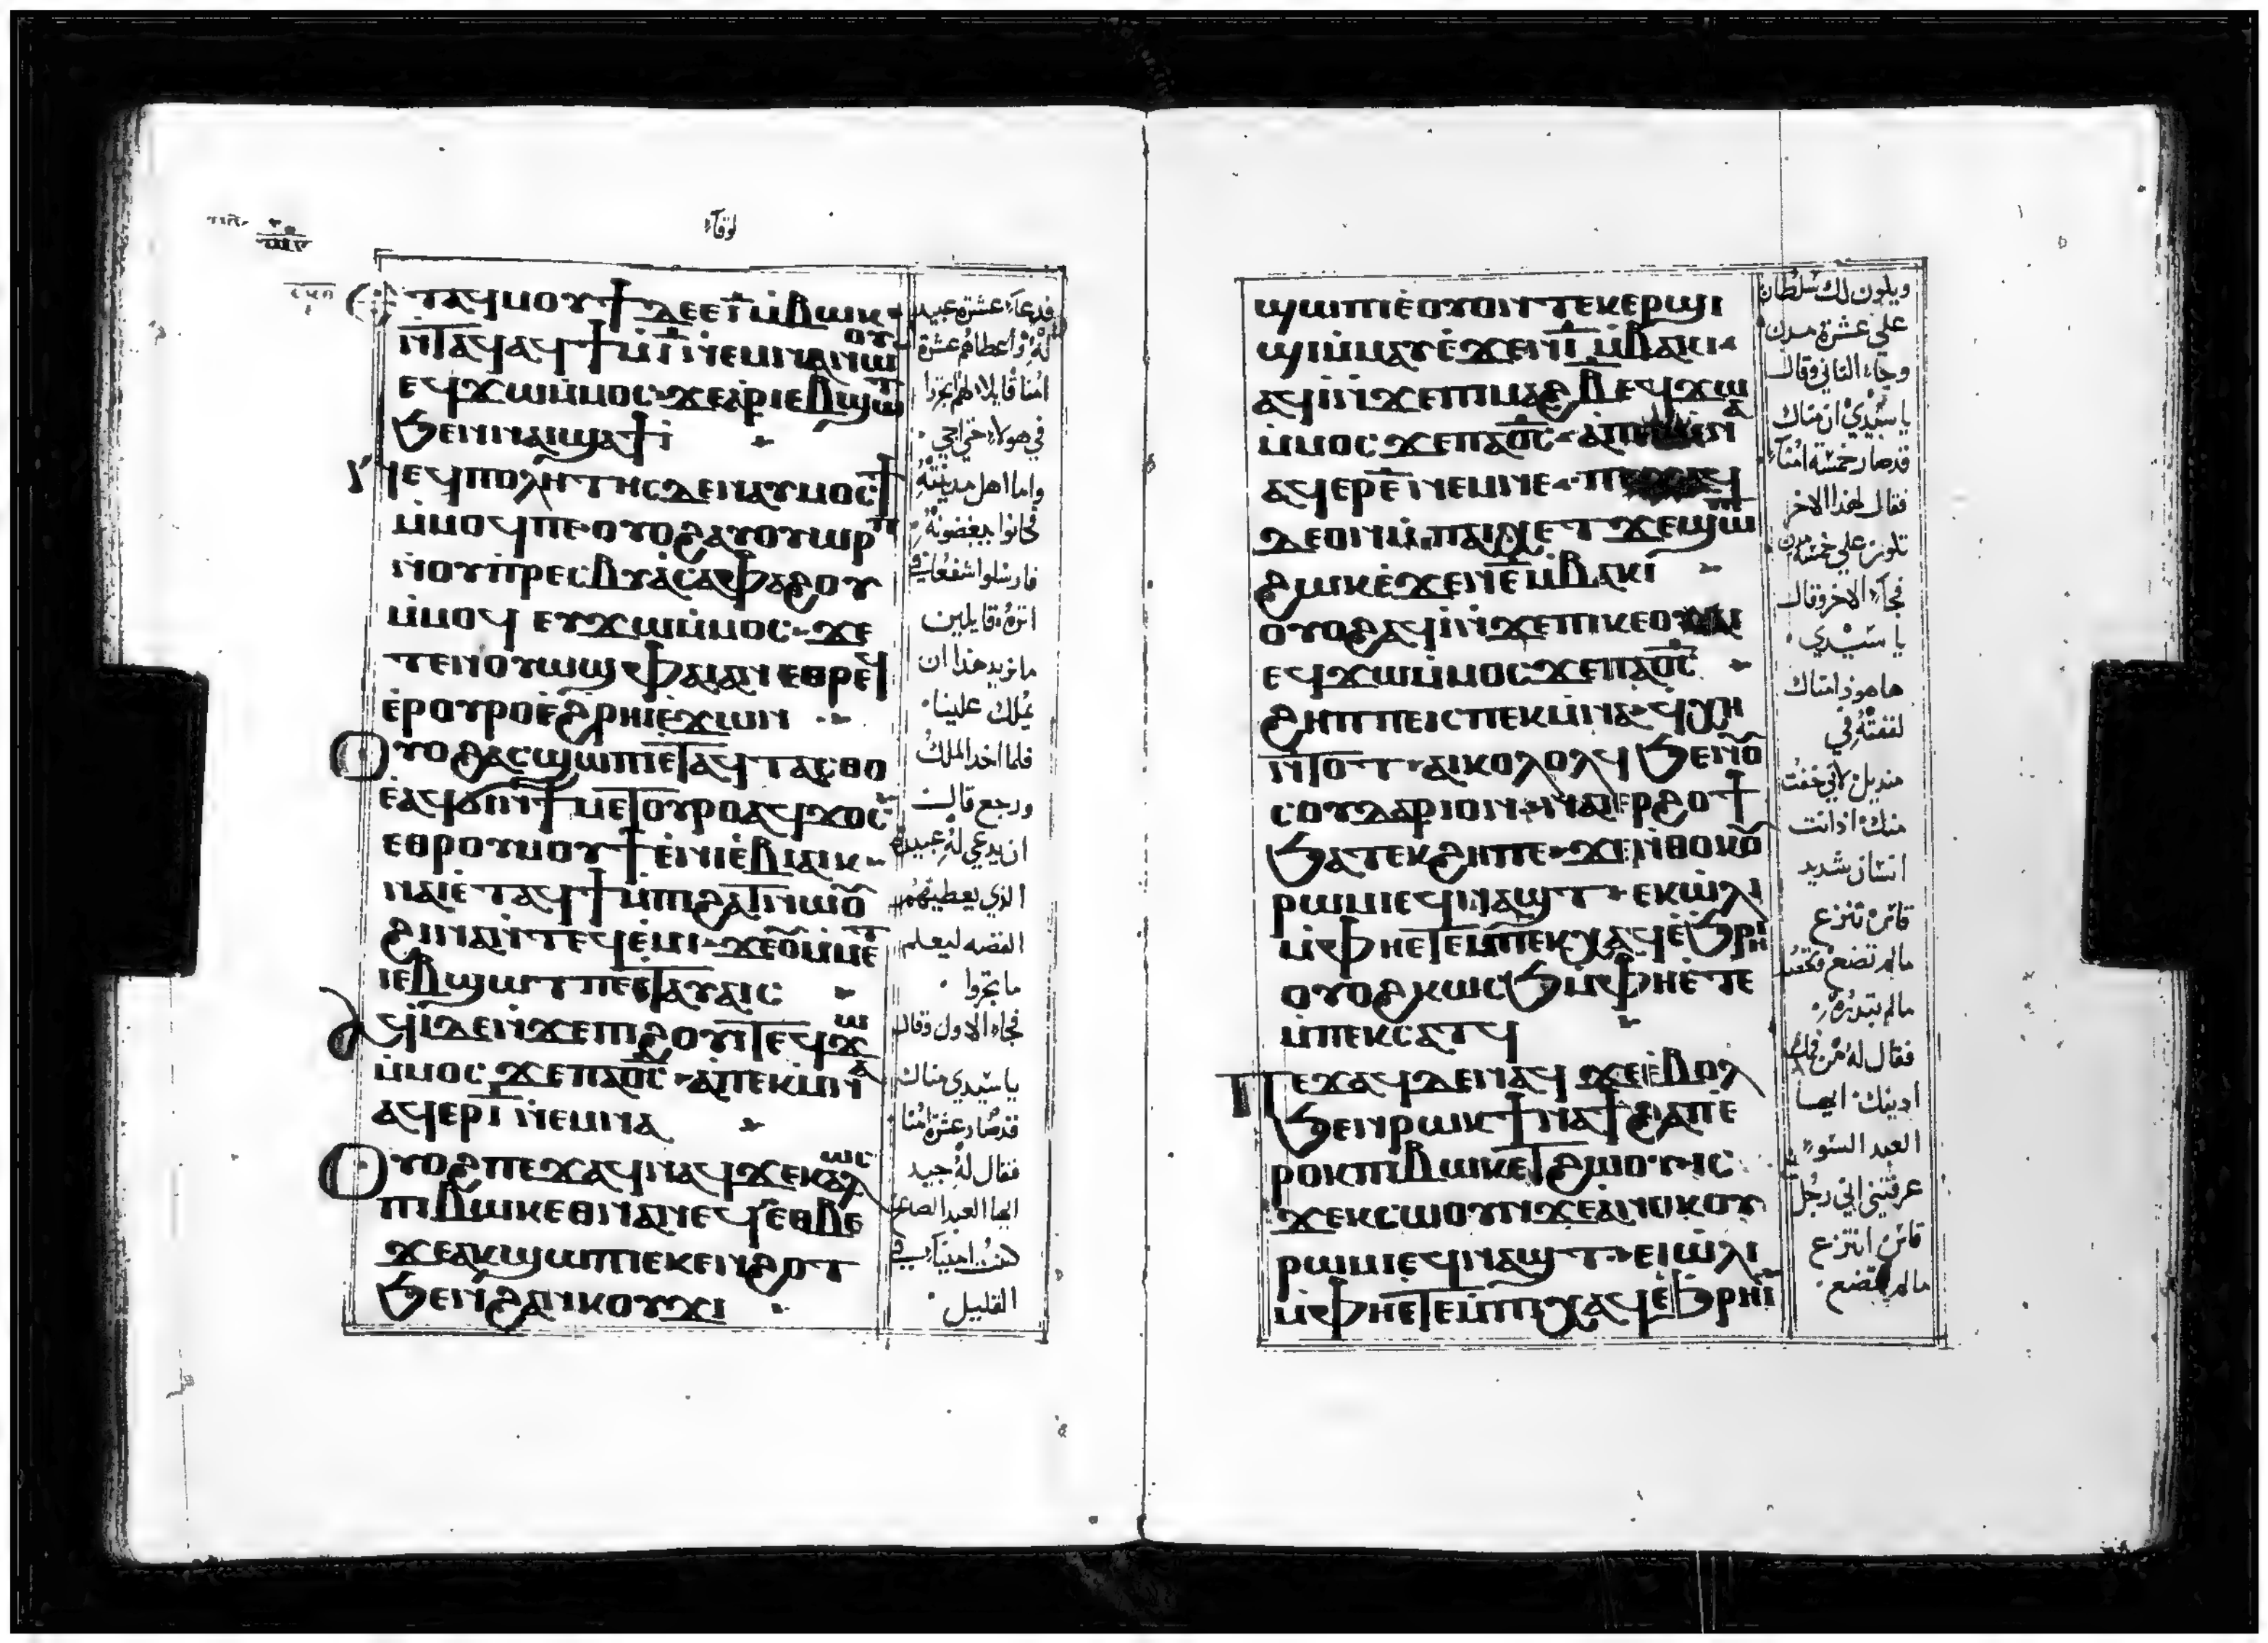 لوقاء
ⲧⲁϥⲙⲟⲩϯ ⲇⲉ ⲉⲓ̅ ⲙ̀ⲃⲱⲕ
ⲛ̀ⲧⲁϥ ⲁϥϯ ⲙ̀ⲓ̅ ⲛ̀ⲉⲙⲛⲁ ⲛⲱⲟⲩ
ⲉϥϫⲱ ⲙ̀ⲙⲟⲥ ϫⲉ ⲁⲣⲓⲉⲃϣⲱⲧ
ϧⲉⲛ ⲛⲁⲓ ϣⲁϯⲓ̀
ⲛⲉϥⲡⲟⲗⲏⲧⲏⲥ ⲇⲉ ⲛⲁⲩⲙⲟⲥϯ
ⲙ̀ⲙⲟϥ ⲡⲉ ⲟⲩⲟϩ ⲁⲩⲟⲩⲱⲣⲡ
ⲛ̀ⲟⲩⲡⲣⲉⲥⲃⲩⲁ ⲥⲁⲫⲁϩⲟⲩ
ⲙ̀ⲙⲟϥ ⲉⲩϫⲱ ⲙ̀ⲙⲟⲥ ϫⲉ
ⲧⲉⲛⲟⲩⲱϣ ⲫⲁⲓ ⲁⲛ ⲉⲑⲣⲉϥ
ⲉ̀ⲣⲟⲩⲣⲟ ⲉ̀ϩⲣⲏⲓ ⲉ̀ϫⲱⲛ
ⲟⲩⲟϩ ⲁⲥϣⲱⲡⲓ ⲉⲧⲁϥⲧⲁⲥⲑⲟ
ⲉ̀ⲁϥϭⲓ ⲛ̀ϯⲙⲉⲧⲟⲩⲣⲟ ⲁϥϫⲟⲥ
ⲉⲑⲣⲟⲩⲙⲟⲩϯ ⲉ̀ⲛⲓⲉ̀ⲃⲓⲁⲓⲕ
ⲛⲁⲓ ⲉ̀ⲧⲁϥϯ ⲙ̀ⲡⲓϩⲁⲧ ⲛⲱⲟⲩ
ϩⲓⲛⲁ ⲛ̀ⲧⲉϥⲉ̀ⲙⲓ ϫⲉ ⲟⲩ ⲙ̀ⲙⲉⲧ
ⲓⲉⲃϣⲱⲧ ⲡⲉⲧⲁⲩⲁⲓⲥ
ⲁϥⲓ̀ ⲇⲉ ⲛ̀ϫⲉ ⲡⲓϩⲟⲩⲓⲧ ⲉϥϫⲱ
ⲙ̀ⲙⲟⲥ ϫⲉ ⲡⲁⲟ̅ⲥ̅ ⲁ̀ⲡⲉⲕⲙ̀ⲛⲁ
ⲁϥⲉⲣⲓ̅ ⲛ̀ⲉⲙⲛⲁ
ⲟⲩⲟϩ ⲡⲉϫⲁϥ ⲛⲁϥ ϫⲉ ⲕⲁⲗⲱⲥ
ⲡⲓⲃⲱⲕ ⲉⲑⲛⲁⲛⲉϥ ⲉⲑⲃⲉ
ϫⲉ ⲁⲕϣⲱⲡⲓ ⲉⲕⲉⲛϩⲟⲧ
ϧⲉⲛ ϩⲁⲛⲕⲟⲩϫⲓ
فدعاء عشرة عبيد
له واعطاهم عشرة
امنا قايلا لهم اتجروا
في هولاء حتى اجي
واما اهل مدينته
فكانوا يبغضونه
فارسلوا شفعا في
اثره قايلين
ما نريد هذا ان
يملك علينا
فلما اخذ الملك
ورجع قال
ان يدعي له عبيده
الذي يعطيهم
الفضه ليعلم
ما تجروا
فجاء الاول وقال
يا سيدي مناك
قد صار عشرة امنا
فقال له جيد
ايها العبد الصالح
كنت امينا في
القليل
ϣⲱⲡⲓ ⲉ̀ⲟⲩⲟⲛ ⲧⲉⲕⲉⲣϣⲓ
ϣⲓ ⲙ̀ⲙⲁⲩ ⲉ̀ϫⲉⲛ ⲓ̅ ⲙ̀ⲃⲁⲕⲓ
ⲁϥⲓ̀ ⲛ̀ϫⲉ ⲡⲓⲙⲁϩⲃ̅ ⲉϥϫⲱ
ⲙ̀ⲙⲟⲥ ϫⲉ ⲡⲁⲟ̅ⲥ̅ ⲁ̀ⲡⲉⲕⲙ̀ⲛⲁ
ⲁϥⲉⲣⲉ̅ ⲛ̀ⲉⲙⲛⲉ ⲡⲉϫⲁϥ
ⲇⲉ ⲟⲛ ⲙ̀ⲡⲁⲓⲭⲉⲧ ϫⲉ ϣⲱⲡⲓ
ϩⲱⲕ ⲉ̀ϫⲉⲛ ⲉ̅ ⲙ̀ⲃⲁⲕⲓ
ⲟⲩⲟϩ ⲁϥⲓ̀ ⲛ̀ϫⲉ ⲡⲓⲕⲉⲟⲩⲁⲓ
ⲉϥϫⲱ ⲙ̀ⲙⲟⲥ ϫⲉ ⲡⲁⲟ̅ⲥ̅
ϩⲏⲡⲡⲉ ⲓⲥ ⲡⲉⲕⲙ̀ⲛⲁ ϥⲭⲏ
ⲛ̀ⲧⲟⲧ ⲁⲓⲕⲟⲗⲟⲗϥ ϧⲉⲛ ⲟⲩ
ⲥⲟⲩⲇⲁⲣⲓⲟⲛ ⲛⲁⲓⲉⲣϩⲟϯ
ϧⲁⲧⲉⲕϩⲏ ⲡⲉ ϫⲉ ⲛ̀ⲑⲟⲕ ⲟⲩ
ⲣⲱⲙⲓ ⲉϥⲛⲁϣⲧ ⲉⲕⲱ̀ⲗⲓ
ⲙ̀ⲫⲏ ⲉⲧⲉ ⲙ̀ⲡⲉⲕⲭⲁϥ ⲉ̀ϧⲣⲏⲓ
ⲟⲩⲟϩ ⲕⲱⲥϧ ⲙ̀ⲫⲏ ⲉ̀ⲧⲉ
ⲙ̀ⲡⲉⲕⲥⲁⲧϥ
ⲡⲉϫⲁϥ ⲇⲉ ⲛⲁϥ ϫⲉ ⲉ̀ⲃⲟⲗ
ϧⲉⲛ ⲣⲱⲕ ϯⲛⲁϯϩⲁⲡ ⲉ̀
ⲣⲟⲕ ⲡⲓⲃⲱⲕ ⲉⲧϩⲱⲟⲩ ⲓⲥ
ϫⲉ ⲕⲥⲱⲟⲩⲛ ϫⲉ ⲁ̀ⲛⲟⲕ ⲟⲩ
ⲣⲱⲙⲓ ⲉϥⲛⲁϣⲧ ⲉⲓⲱ̀ⲗⲓ
ⲙ̀ⲫⲏ ⲉⲧⲉ ⲙ̀ⲡⲓⲭⲁϥ ⲉ̀ϧⲣⲏⲓ
ويكون لك سلطان
على عشرة مدن
وجاء الثاني وقال
يا سيدي ان مناك
قد صار خمسة امناء
فقال لهذا الاخر
تكون على خمسة مدن
فجاء الاخر وقال
يا سيدي
ها هوذا مناك
لففته في
منديل لاني خفت
منك اذ انت
انسان شديد
قاس تنزع
ما لم تضع وتحصد
ما لم تبذره
فقال له من فمك
ادينك ايها
العبد السوء
عرفتني اني رجل
قاس انتزع
ما لم اضع